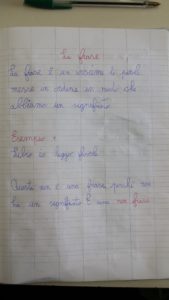 La frase
La frase è un insieme di parole
messe in ordine in modo che
abbiano un significato.
Esempio:
Libro io leggo
Questa non è una frase perché non
ha un significato È una non frase